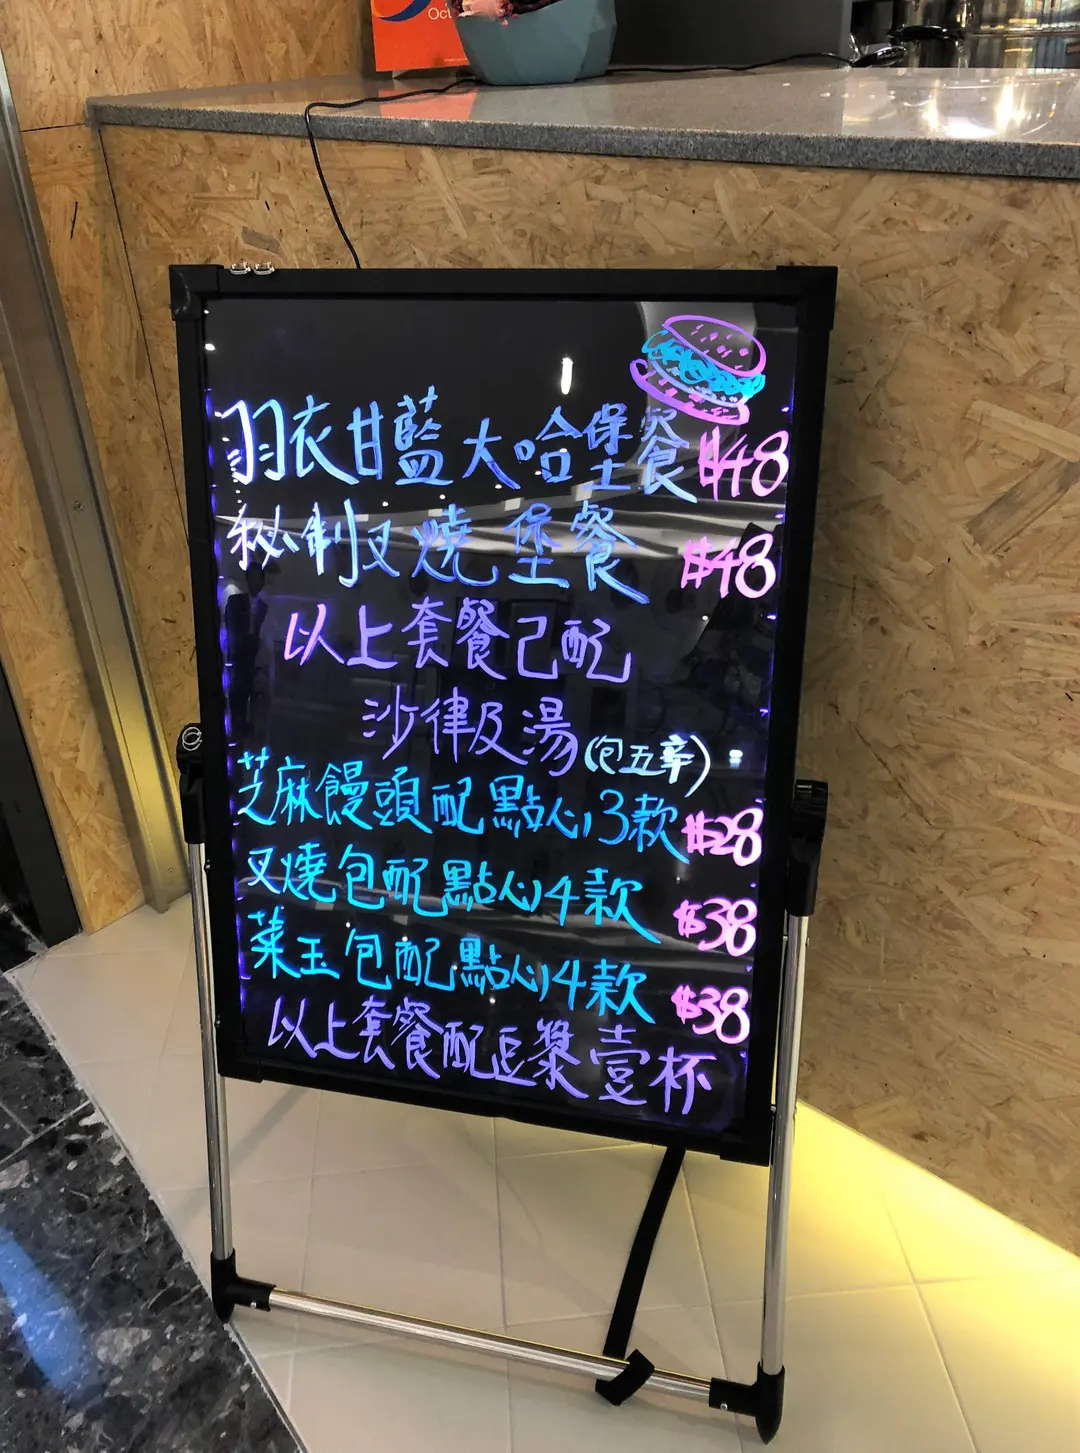 Oct
羽衣甘藍大哈堡餐 $48
秘制叉燒堡餐 $48
以上套餐己配
沙律及湯(包五辛)
芝麻饅頭配點心3款 $28
叉燒包配點心4款 $38
菜玉包配點心4款 $38
以上套餐配豆漿壹杯